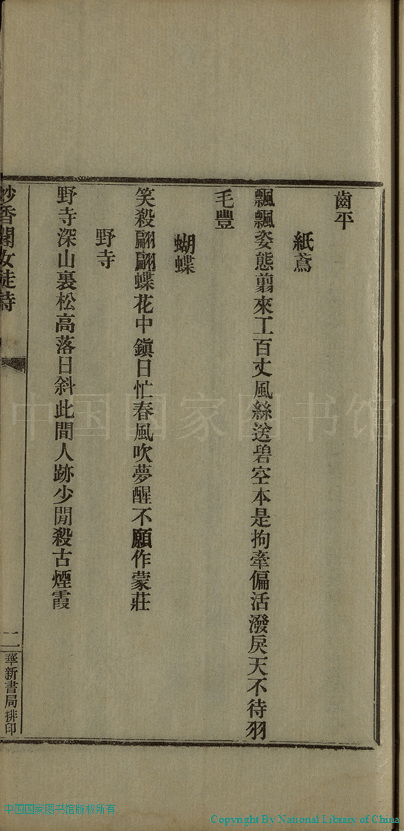 齒平
紙鳶
飄飄姿態翦來工百丈風絲送碧空本是拘牽偏活潑戾天不待羽
毛豐
蝴蝶
笑殺翩翩蝶花中鎮日忙春風吹夢醒不願作蒙莊
野寺
野寺深山裏松高落日斜此間人跡少閒殺古煙霞
妙香閣女徒詩
二
華新書局排印
中国国家图书馆
中国国家图书馆版权所有
Copyright By National Library of China